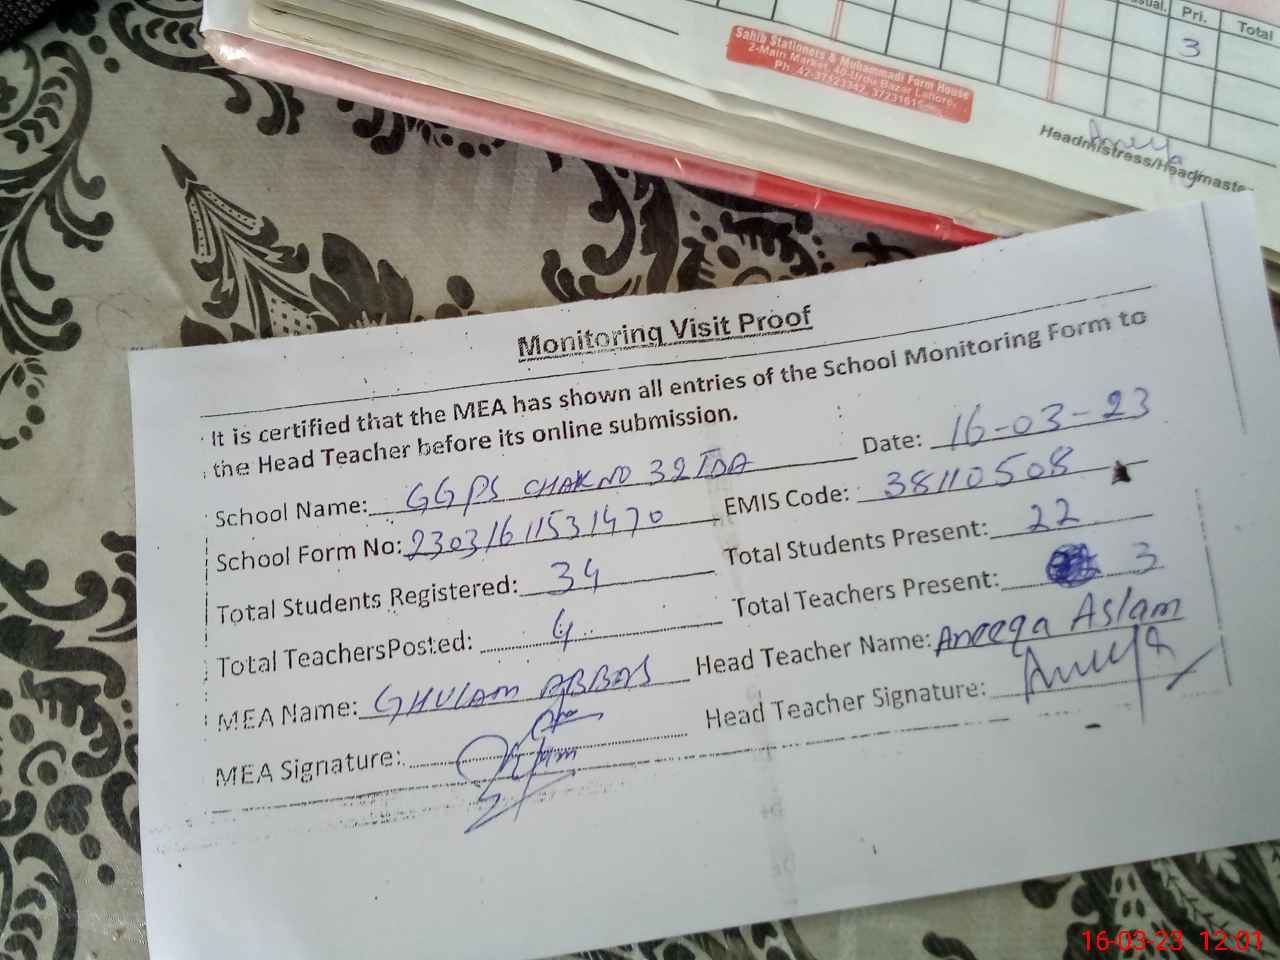 sual. Pri. Total
3
Sahib Stationers & Muhammadi Form House
2-Main Market, 40-Urdu Bazar Lahore.
Ph: 42-37123342, 37231615
Aneeqa
Headmistress/Headmaste
Monitoring Visit Proof
It is certified that the MEA has shown all entries of the School Monitoring Form to
the Head Teacher before its online submission.
Date: 16-03-23
School Name: GGPS CHAK NO 32 TDA
EMIS Code: 38110508
School Form No: 230316115311470
Total Students Present: 22
Total Students Registered: 34
Total Teachers Present: 3
Total TeachersPosted: 4
Head Teacher Name: Aneeqa Aslam
MEA Name: GHULAM ABBAS
Head Teacher Signature: Aneeqa
MEA Signature:
16-03-23 12:01